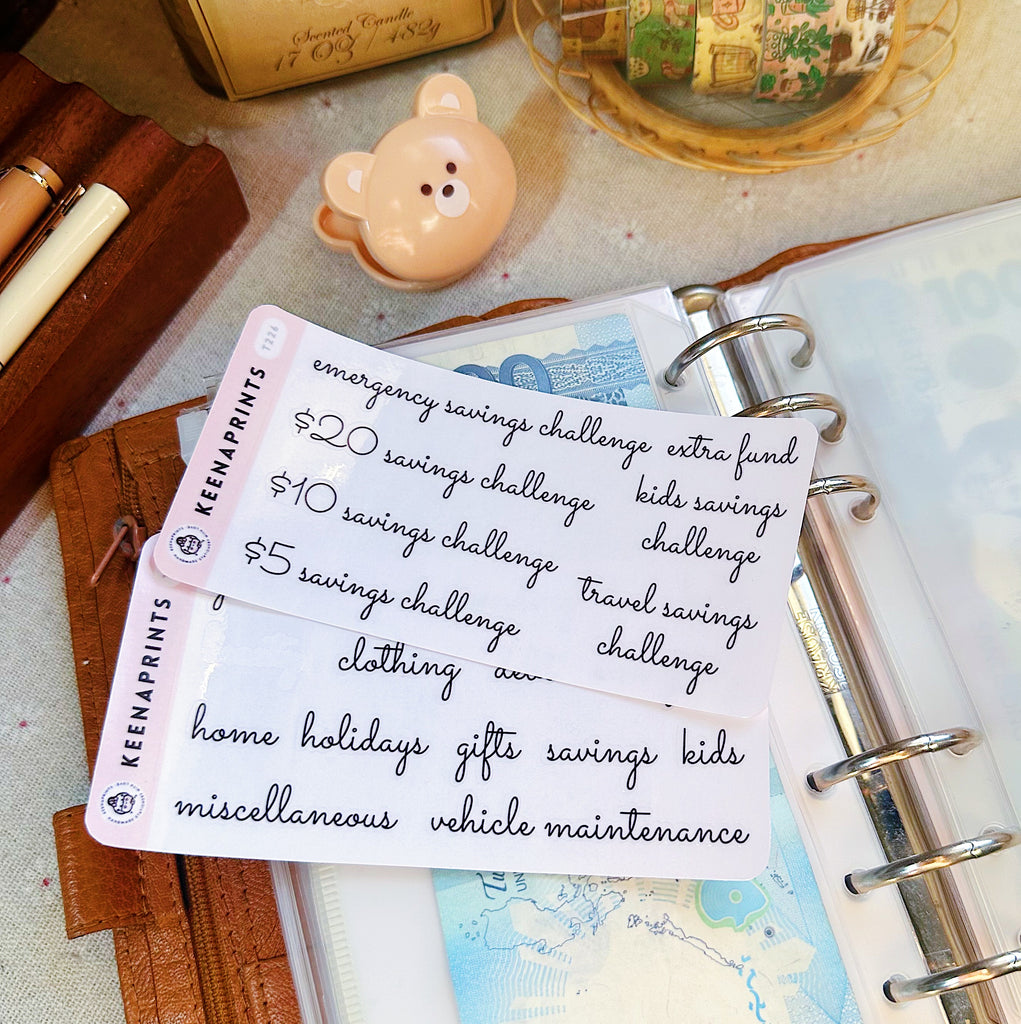 Scented Candle
17 OZ / 482g
T226
KEENAPRINTS
emergency savings challenge extra fund
$20 savings challenge kids savings challenge
$10 savings challenge
$5 savings challenge travel savings challenge
KEENAPRINTS
clothing
home holidays gifts savings kids
miscellaneous vehicle maintenance